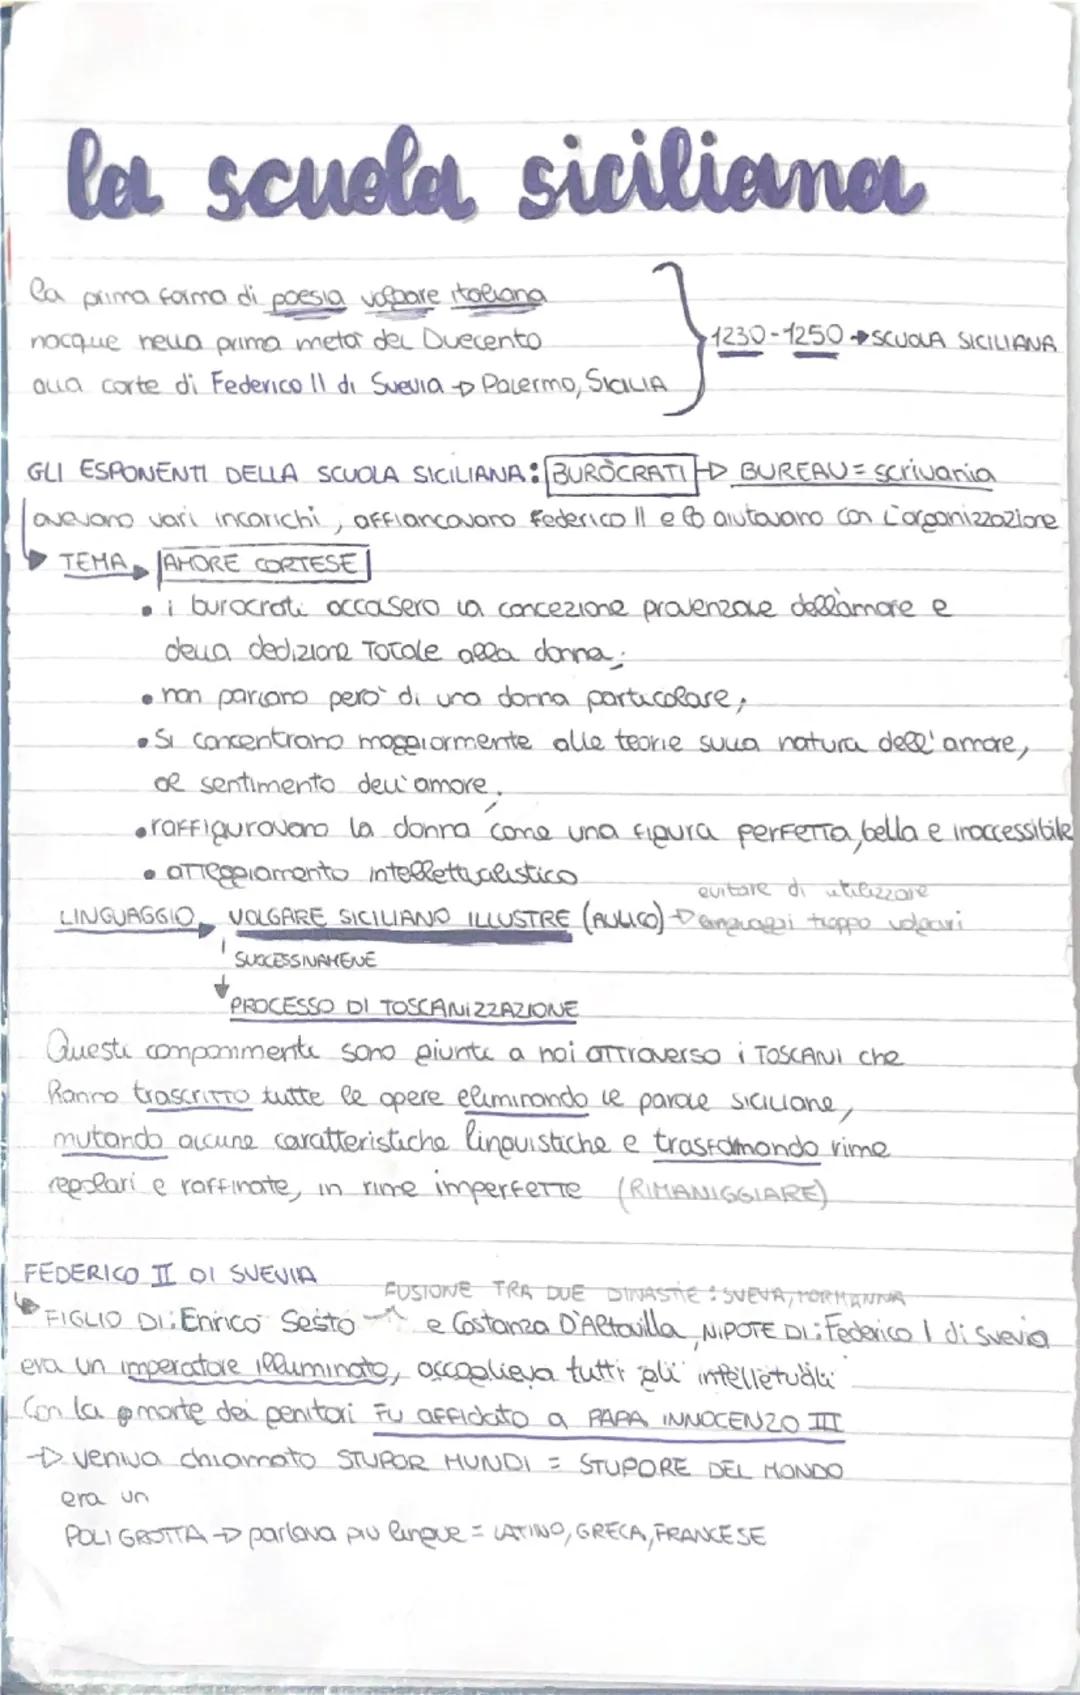 la scuola siciliana
la prima forma di poesia volgare italiana
nacque nella prima metà del Duecento
1230-1250 → SCUOLA SICILIANA
alla corte di Federico II di Svevia → Palermo, SICILIA
GLI ESPONENTI DELLA SCUOLA SICILIANA: BURÒCRATI → BUREAU = scrivania
avevano vari incarichi, affiancavano Federico II e lo aiutavano con l'organizzazione
TEMA → AMORE CORTESE
• i burocrati accasero la concezione provenzale dell'amore e
della dedizione TOTALE alla donna;
• non parlano però di una donna particolare;
• Si concentrano maggiormente alle teorie sulla natura dell'amore,
al sentimento dell'amore.
• raffiguravano la donna come una figura PERFETTA, bella e inaccessibile
• atteggiamento intellettualistico
evitare di utilizzare
LINGUAGGIO → VOLGARE SICILIANO ILLUSTRE (AULICO) → linguaggi troppo volgari
SUCCESSIVAMENE
PROCESSO DI TOSCANIZZAZIONE
Questi componimenti sono giunti a noi attraverso i TOSCANI che
hanno trascritto tutte le opere eliminando le parole siciliane,
mutando alcune caratteristiche linguistiche e trasformando rime
regolari e raffinate, in rime imperfette (RIMANIGGIARE)
FEDERICO II DI SVEVIA
FUSIONE TRA DUE DINASTIE: SVEVA, NORMANNA
FIGLIO DI: Enrico Sesto e Costanza D'Altavilla, NIPOTE DI: Federico I di Svevia
era un imperatore illuminato, accoglieva tutti gli intelletuali
Con la morte dei genitori fu affidato a PAPA INNOCENZO III
→ veniva chiamato STUPOR MUNDI = STUPORE DEL MONDO
era un
POLIGROTTA → parlava più lingue = LATINO, GRECA, FRANCESE